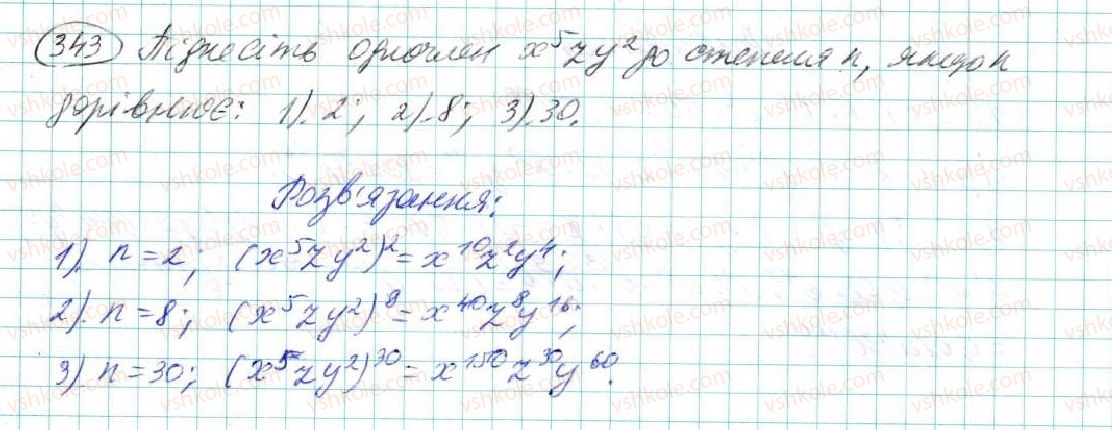 343 Піднесіть одночлен x⁵zy² до степеня n, якщо n
дорівнює: 1). 2; 2). 8; 3). 30.
Розв'язання:
1). n = 2; (x⁵zy²)² = x¹⁰z²y⁴;
2). n = 8; (x⁵zy²)⁸ = x⁴⁰z⁸y¹⁶;
3) n = 30; (x⁵zy²)³⁰ = x¹⁵⁰z³⁰y⁶⁰.